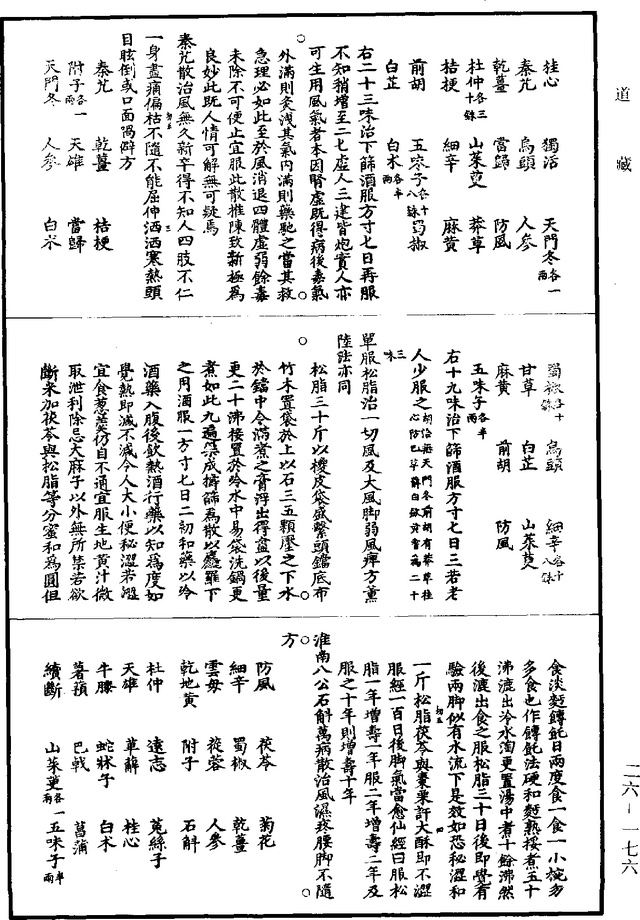 道藏
桂心　獨活　天門冬各一兩
秦艽　烏頭　人參
乾薑　當歸　防風
杜仲各三十銖　山茱萸　莽草
桔梗　細辛　麻黃
前胡　五味子各十八銖　蜀椒
白芷　白朮各半兩
右二十三味治下篩酒服方寸七日再服
不知稍增至二七虛人三建皆炮實人亦
可生用風氣者本因腎虛既得病後毒氣
外滿則灸淺其氣內滿則藥馳之當其救
急理必如此至於風消退四體虛弱餘毒
未除不可便止宜服此散推陳致新極為
良妙此既人情可解無可疑焉
秦艽散治風無久新辛得不知人四肢不仁
一身盡痛偏枯不隨不能屈伸洒洒寒熱頭
目眩倒或口面喎僻方
秦艽　乾薑　桔梗
附子各一兩　天雄　當歸
天門冬　人參　白朮
蜀椒各十銖　烏頭　細辛各十八銖
甘草　白芷　山茱萸
麻黃　前胡　防風
五味子各半兩
右十九味治下篩酒服方寸七日三若老
人少服之胡洽無天門冬前胡有莽草桂心防己萆薢白蘞黃耆為二十三味
單服松脂治一切風及大風脚弱風痺方薰
陸法亦同
松脂三十斤以椶皮袋盛繫頭鐺底布
竹木置袋於上以石三五顆壓之下水
於鐺中令滿煮之膏浮出得盡以後量
更二十沸接置於冷水中易袋洗鍋更
煮如此九遍藥成擣篩為散以麤羅下
之用酒服一方寸七日二初和藥以冷
酒藥入腹後飲熱酒行藥以知為度如
覺熱即減不減令人大小便秘澀若澀
宜食葱羹仍自不通宜服生地黃汁微
取泄利除忌大麻子以外無所禁若欲
斷米加茯苓與松脂等分蜜和為圓但
食淡麪餺飥日兩度食一食一小椀勿
多食也作餺飥法硬和麪熟挼煮五十
沸漉出冷水淘更置湯中煮十餘沸然
後漉出食之服松脂三十日後即覺有
驗兩脚似有水流下是效如恐秘澀和
一斤松脂茯苓與棗栗許大酥即不澀
服經一百日後脚氣當愈仙經曰服松
脂一年增壽一年服二年增壽二年及
服之十年則增壽十年
淮南八公石斛萬病散治風濕疼腰脚不隨
方
防風　茯苓　菊花
細辛　蜀椒　乾薑
雲母　蓯蓉　人參
乾地黃　附子　石斛
杜仲　遠志　菟絲子
天雄　萆薢　桂心
牛膝　蛇牀子　白朮
薯蕷　巴戟　菖蒲
續斷　山茱萸各一兩　五味子半兩
二六－一七六